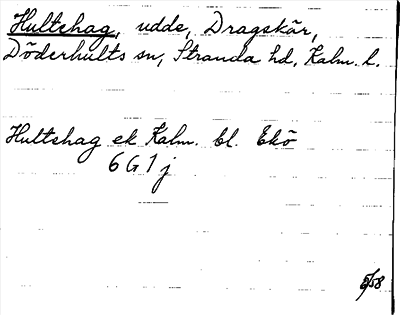 Hultshag, udde, Dragskär,
Döderhults sn, Stranda hd, Kalm. l.
Hultshag ek Kalm. bl. Ekö
6 G 1 j